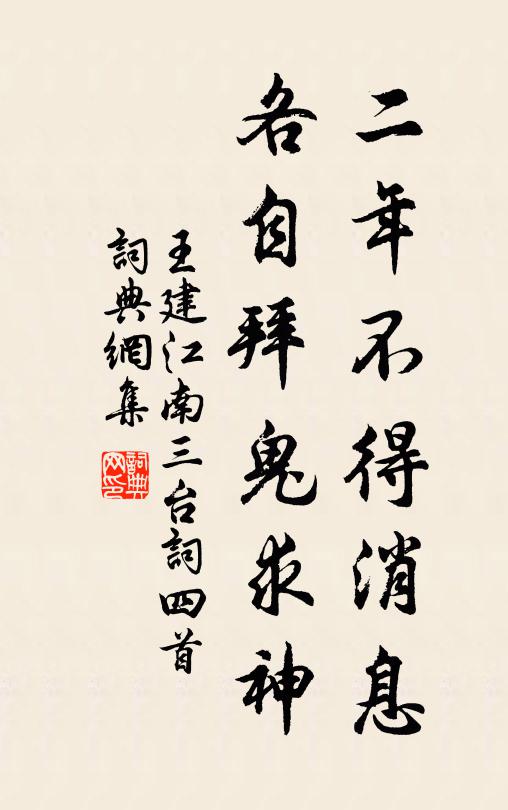 二年不得消息
各自拜鬼求神
王建江南三台詞四首
詞典網集
詞典
网印